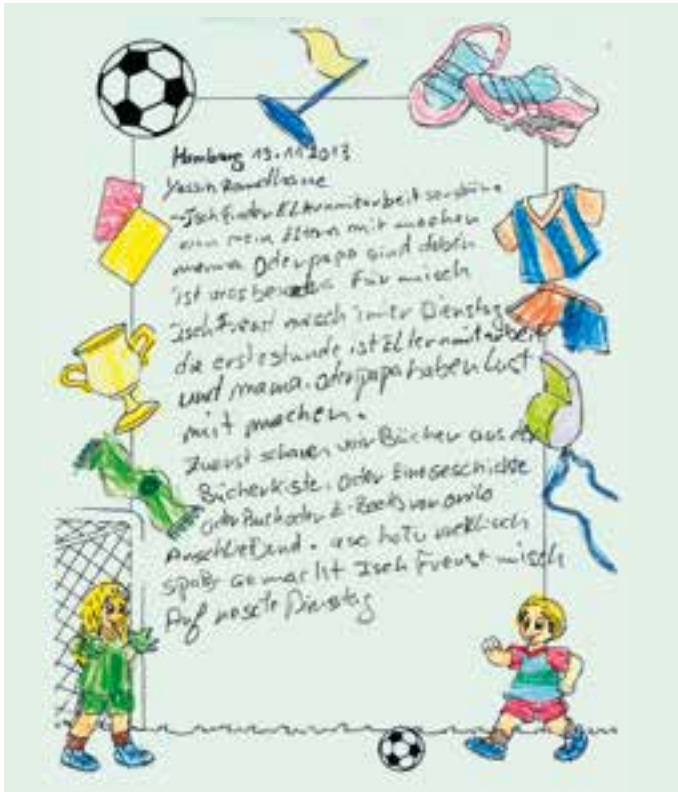 Hamburg 19.11.2013
Yassin
Isch finde Elternarbeit so schön
wen mein Eltern mit machen
mama Oder papa sind dabei
ist was besonders Für misch
Isch Freust misch imer Dienstag
die erste stunde ist Elternmitarbeit
und mama. oder papa haben Lust
mit machen.
Zuerst schauen wir Bücher aus der
Bücherkiste. oder Eine geschichte
oder Buch oder E-Books von onilo
Anschließend. es hat wirklisch
spaß gemacht Isch Freust misch
Auf neste Dienstag